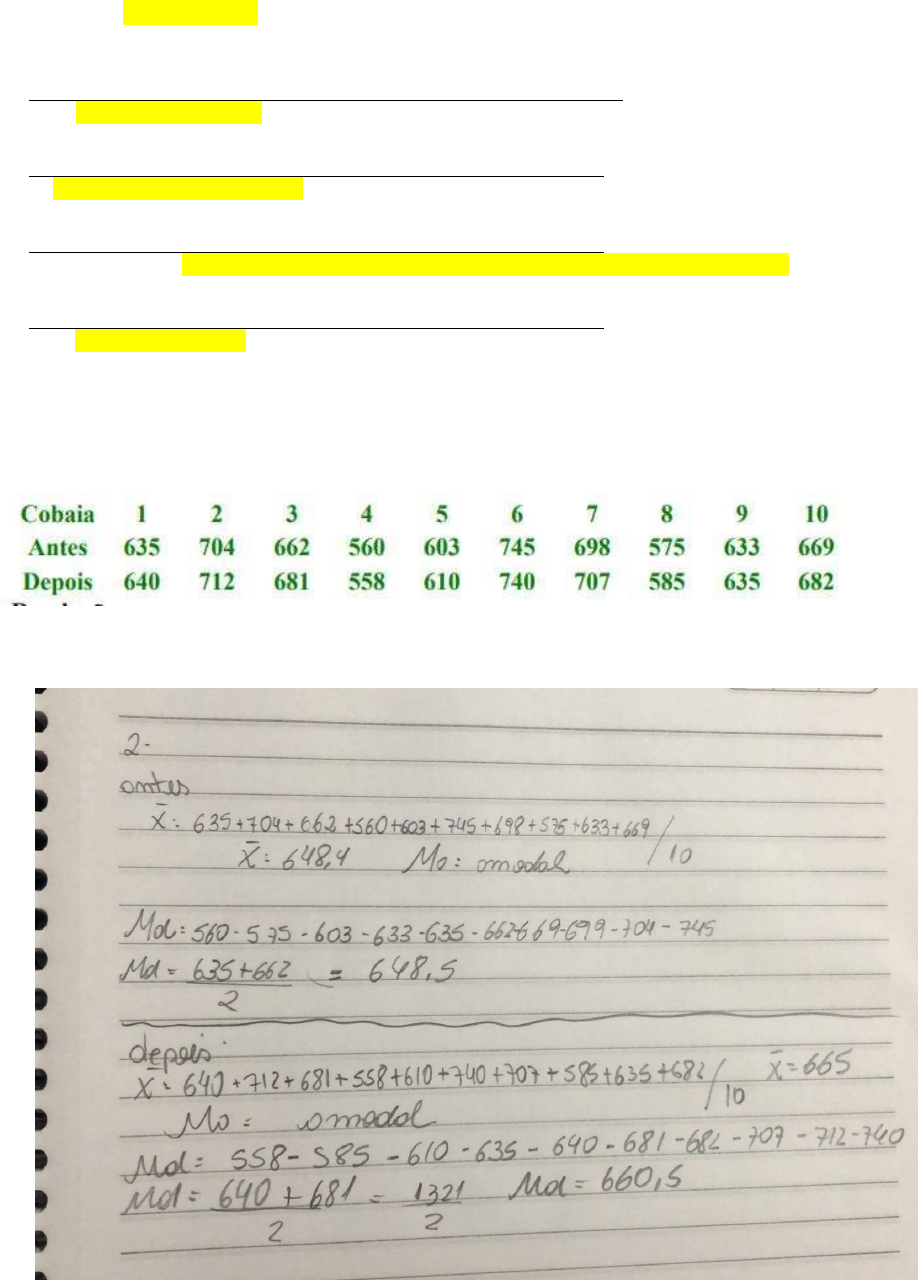 Cobaia 1 2 3 4 5 6 7 8 9 10
Antes 635 704 662 560 603 745 698 575 633 669
Depois 640 712 681 558 610 740 707 585 635 682
2-
antes
X̄: 635+704+662+560+603+745+698+575+633+669/10
X̄: 648,4 Mo: amodal
Md: 560-575-603-633-635-662-669-699-704-745
Md = 635+662/2 = 648,5
depois:
X̄: 640+712+681+558+610+740+707+585+635+682/10 X̄=665
Mo = amodal
Md= 558-585-610-635-640-681-682-707-712-740
Md= 640+681/2 = 1321/2 Md= 660,5